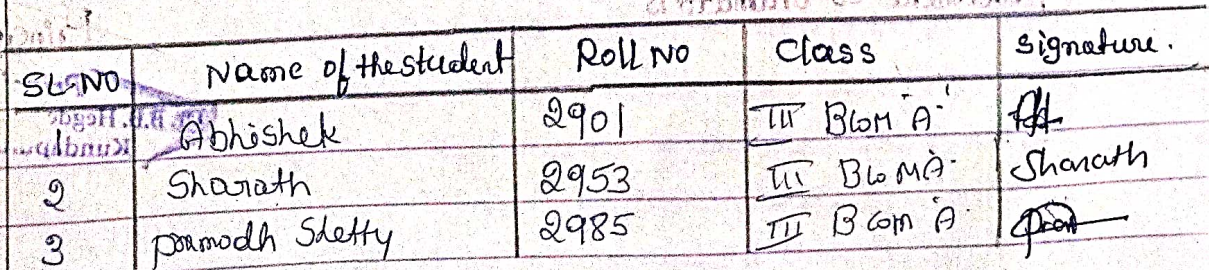 SL NO Name of the student Roll No Class Signature.
1 Abhishek 2901 III BCOM 'A'
2 Sharath 2953 III BCOM A Sharath
3 pramodh Shetty 2985 III BCOM A